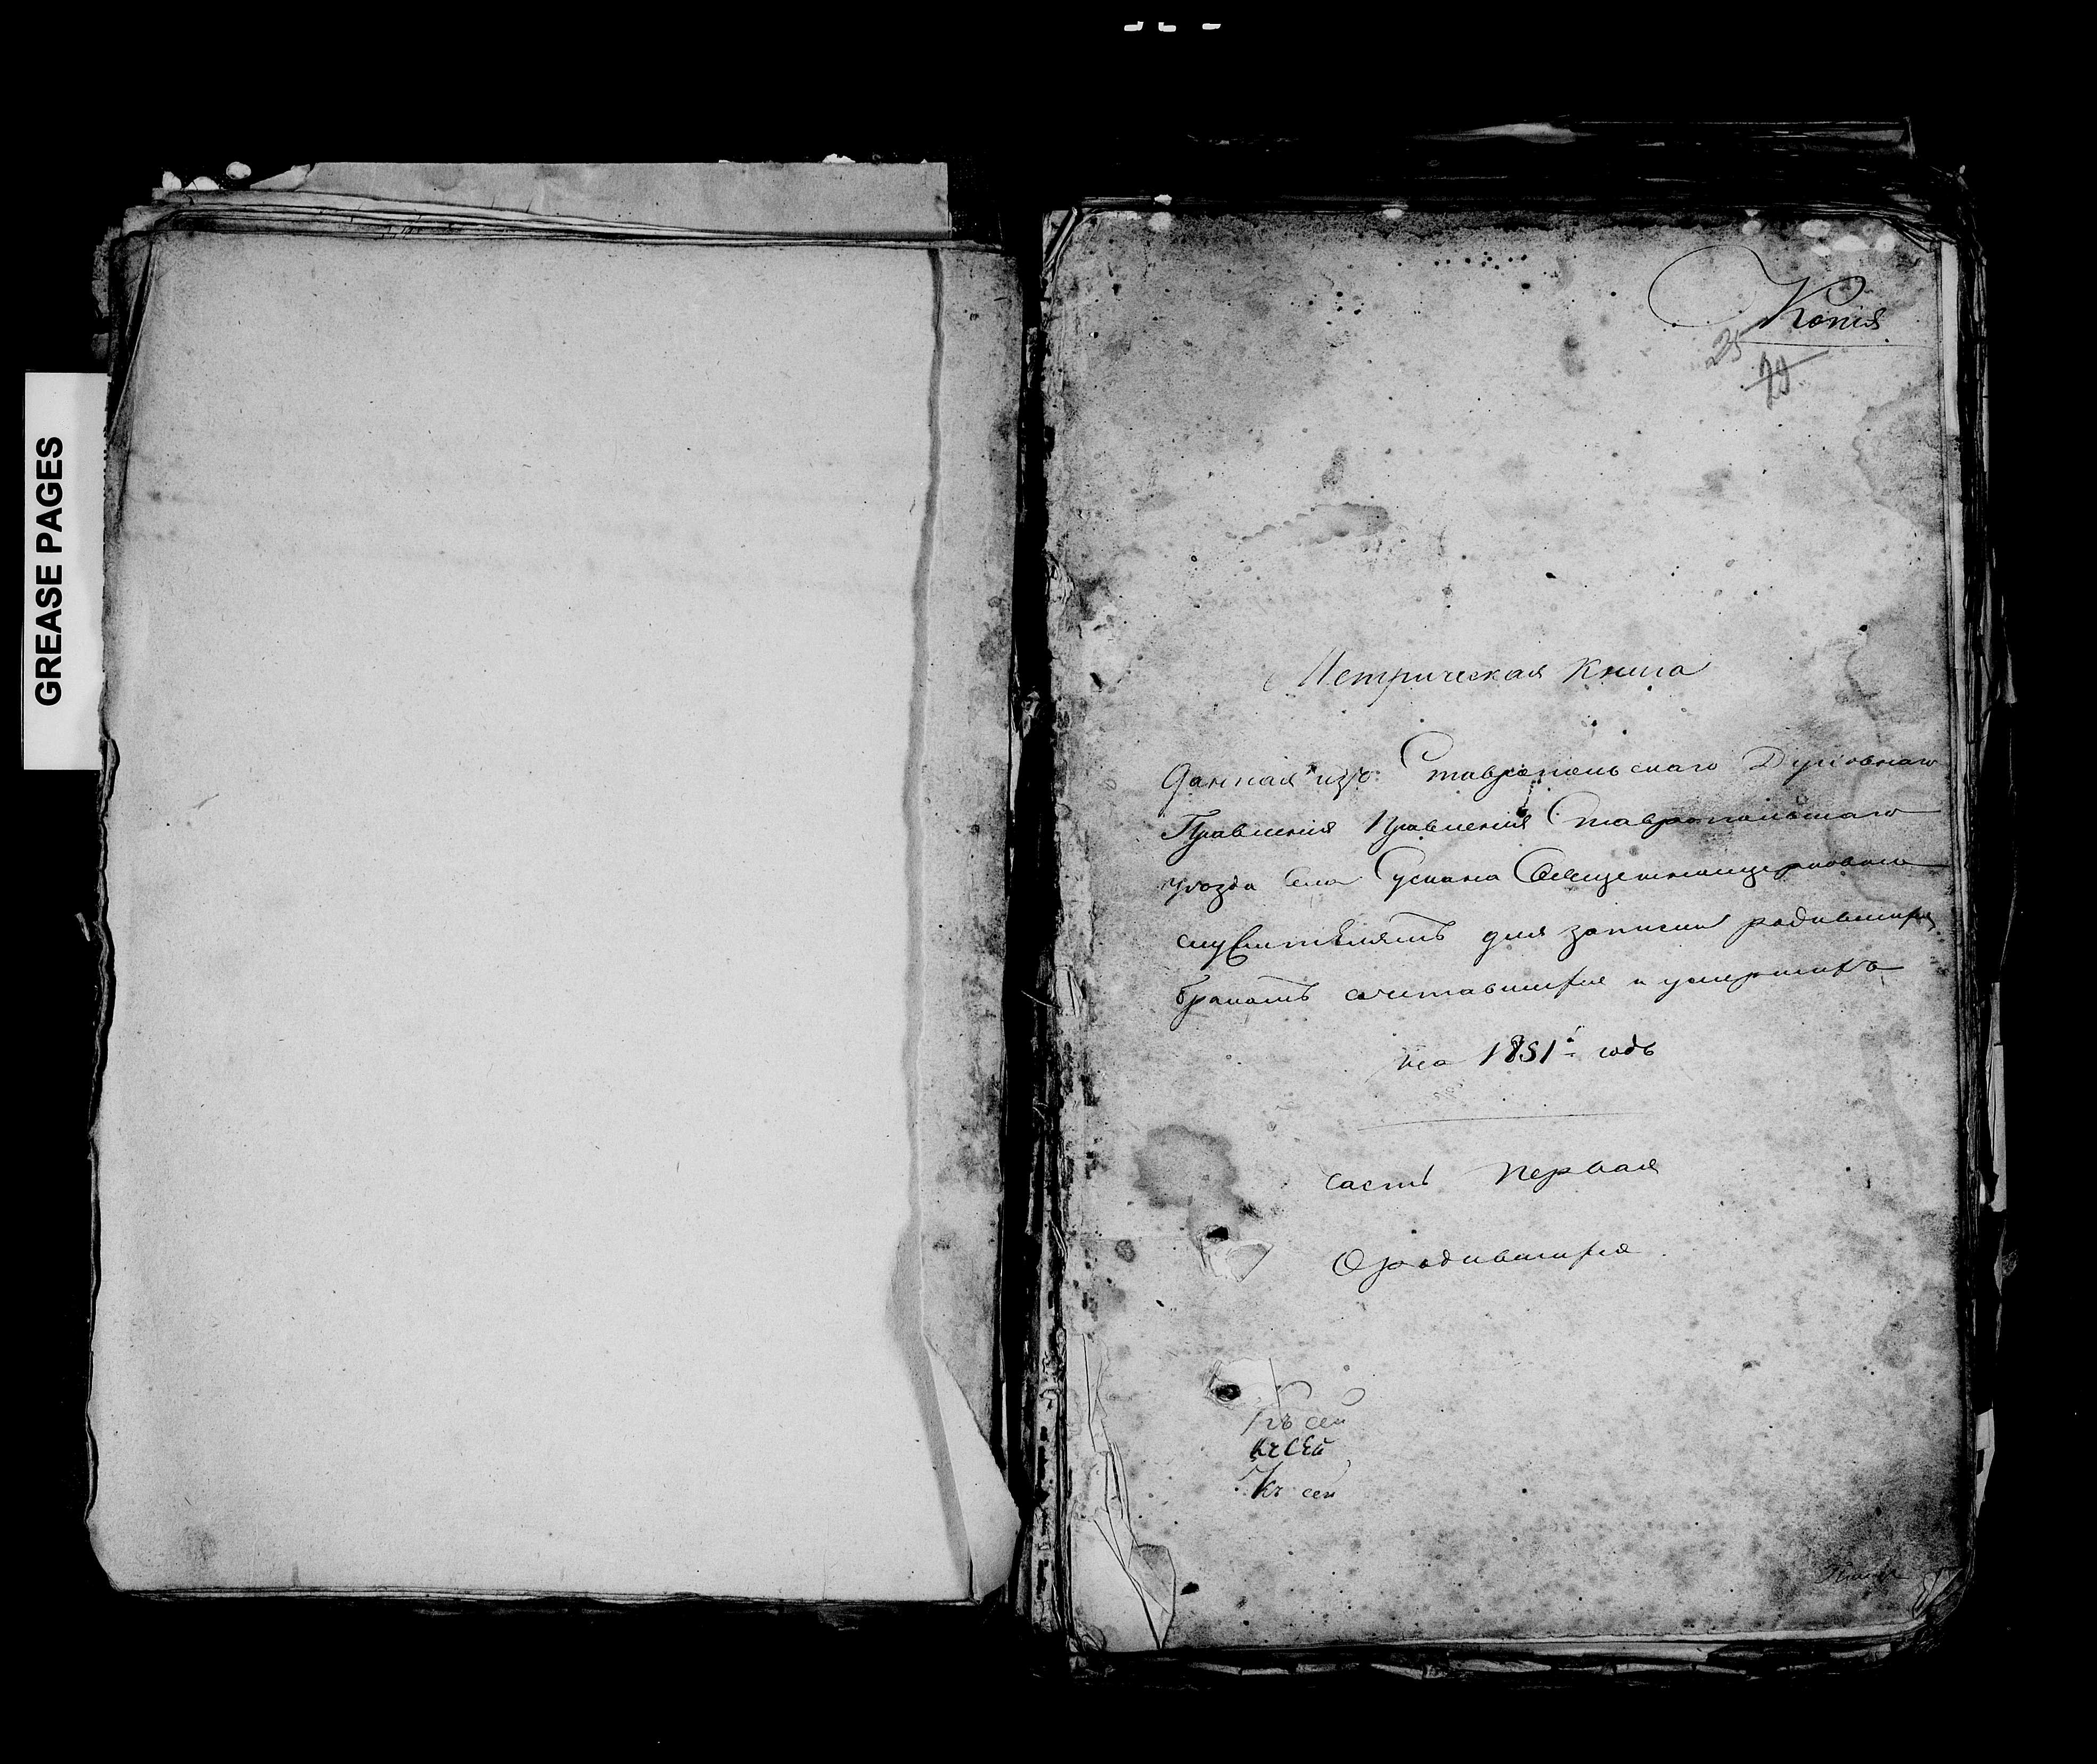 GREASE PAGES
Копия
25
29
Метрическая Книга
Данная изъ Ставропольскаго Духовнаго
Правления Правления Ставропольскаго
уѣзда Села Сускана Священноцерковно
служителямъ для записки родившихся
бракомъ сочетавшихся и умершихъ
на 1851й годъ
часть первая
О родившихся